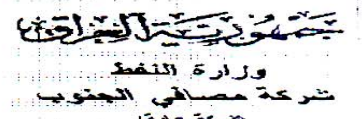 جمهورية العراق
وزارة النفط
شركة مصافي الجنوب